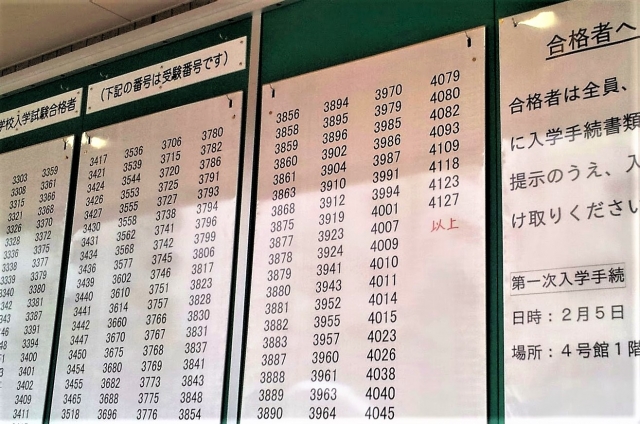 学校入学試験合格者
3303 3359
3308 3361
3315 3366
3321 3368
3326 3370
3328 3372
3336 3375
3338 3377
3339 3379
3340 3380
3381
3387
3391
3394
3400
3401
3402
3409
3411
(下記の番号は受験番号です)
3417 3536 3706 3780
3421 3539 3715 3782
3424 3544 3720 3786
3426 3553 3725 3791
3427 3555 3727 3793
3430 3558 3738 3794
3431 3562 3741 3796
3434 3568 3742 3799
3436 3577 3745 3806
3439 3602 3746 3817
3440 3610 3751 3823
3441 3614 3757 3828
3442 3660 3766 3830
3447 3670 3767 3831
3450 3675 3768 3837
3454 3680 3769 3841
3455 3682 3773 3843
3465 3688 3775 3848
3518 3696 3776 3854
3856 3894 3970 4079
3858 3895 3979 4080
3859 3896 3985 4082
3860 3902 3986 4093
3861 3904 3987 4109
3863 3910 3991 4118
3868 3912 3994 4123
3875 3919 4001 4127
3877 3923 4007 以上
3878 3924 4009
3879 3941 4010
3880 3943 4011
3881 3952 4014
3882 3955 4015
3883 3957 4023
3887 3960 4026
3888 3961 4038
3889 3963 4040
3890 3964 4045
合格者へ
合格者は全員、
に入学手続書類
提示のうえ、入
け取りください
第一次入学手続
日時：2月5日
場所：4号館1階